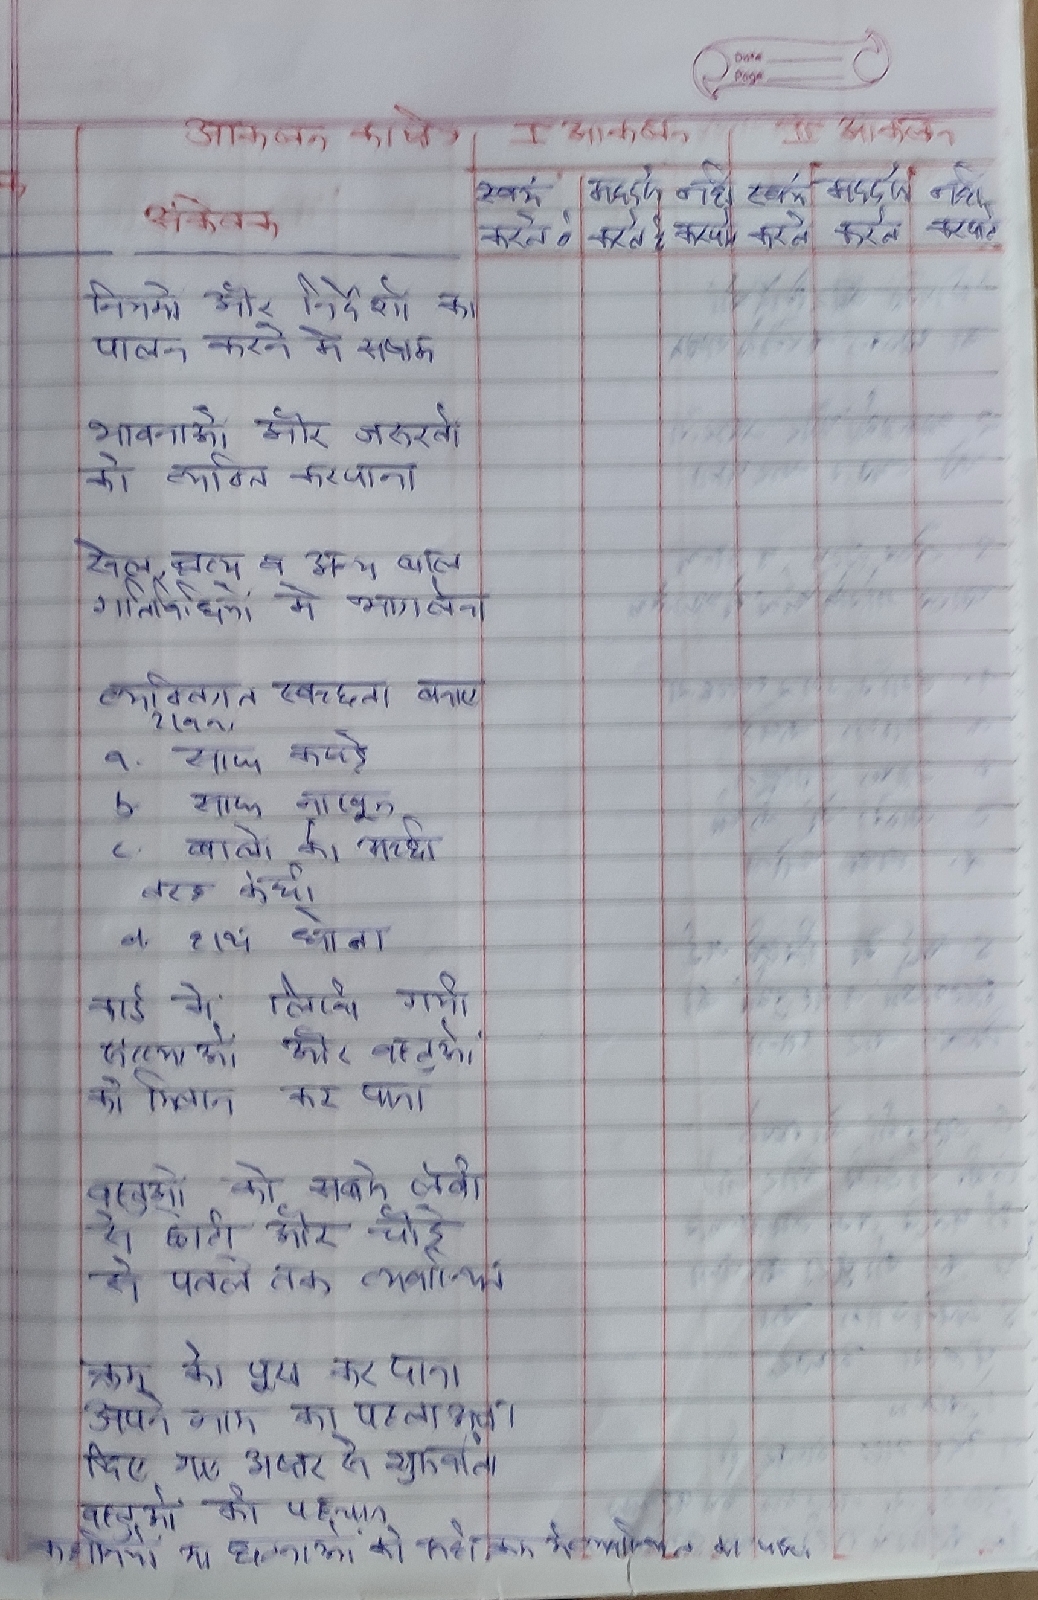 Date
Page
आकलन कार्य I आकलन II आकलन
संकेतक
स्वयं मदद से नही स्वयं मदद से नहि
करते है करते है करपाते करते करते करपाते
नियमो और निर्देशो का
पालन करने मे सक्षम
भावनाओ और जरूरतो
को व्यक्त करपाना
खेल, नृत्य व अन्य बाल
गतिविधियो मे भाग लेना
व्यक्तिगत स्वच्छता बनाए
रखना
a. साफ कपड़े
b. साफ नाखून
c. बालो की अच्छी
तरह कंघी
d. हाथ धोना
कार्ड मे लिखी गयी
संख्याओ और वस्तुओ
को मिलान कर पाना
वस्तुओ को सबसे लंबी
से छोटी और चौड़े
से पतले तक व्यवस्थित
क्रम को पूरा कर पाना
अपने नाम का पहला अक्षर
दिए गए अक्षर से शुरू
वस्तुओ की पहचान
कहानियो या घटनाओ को सही क्रम मे